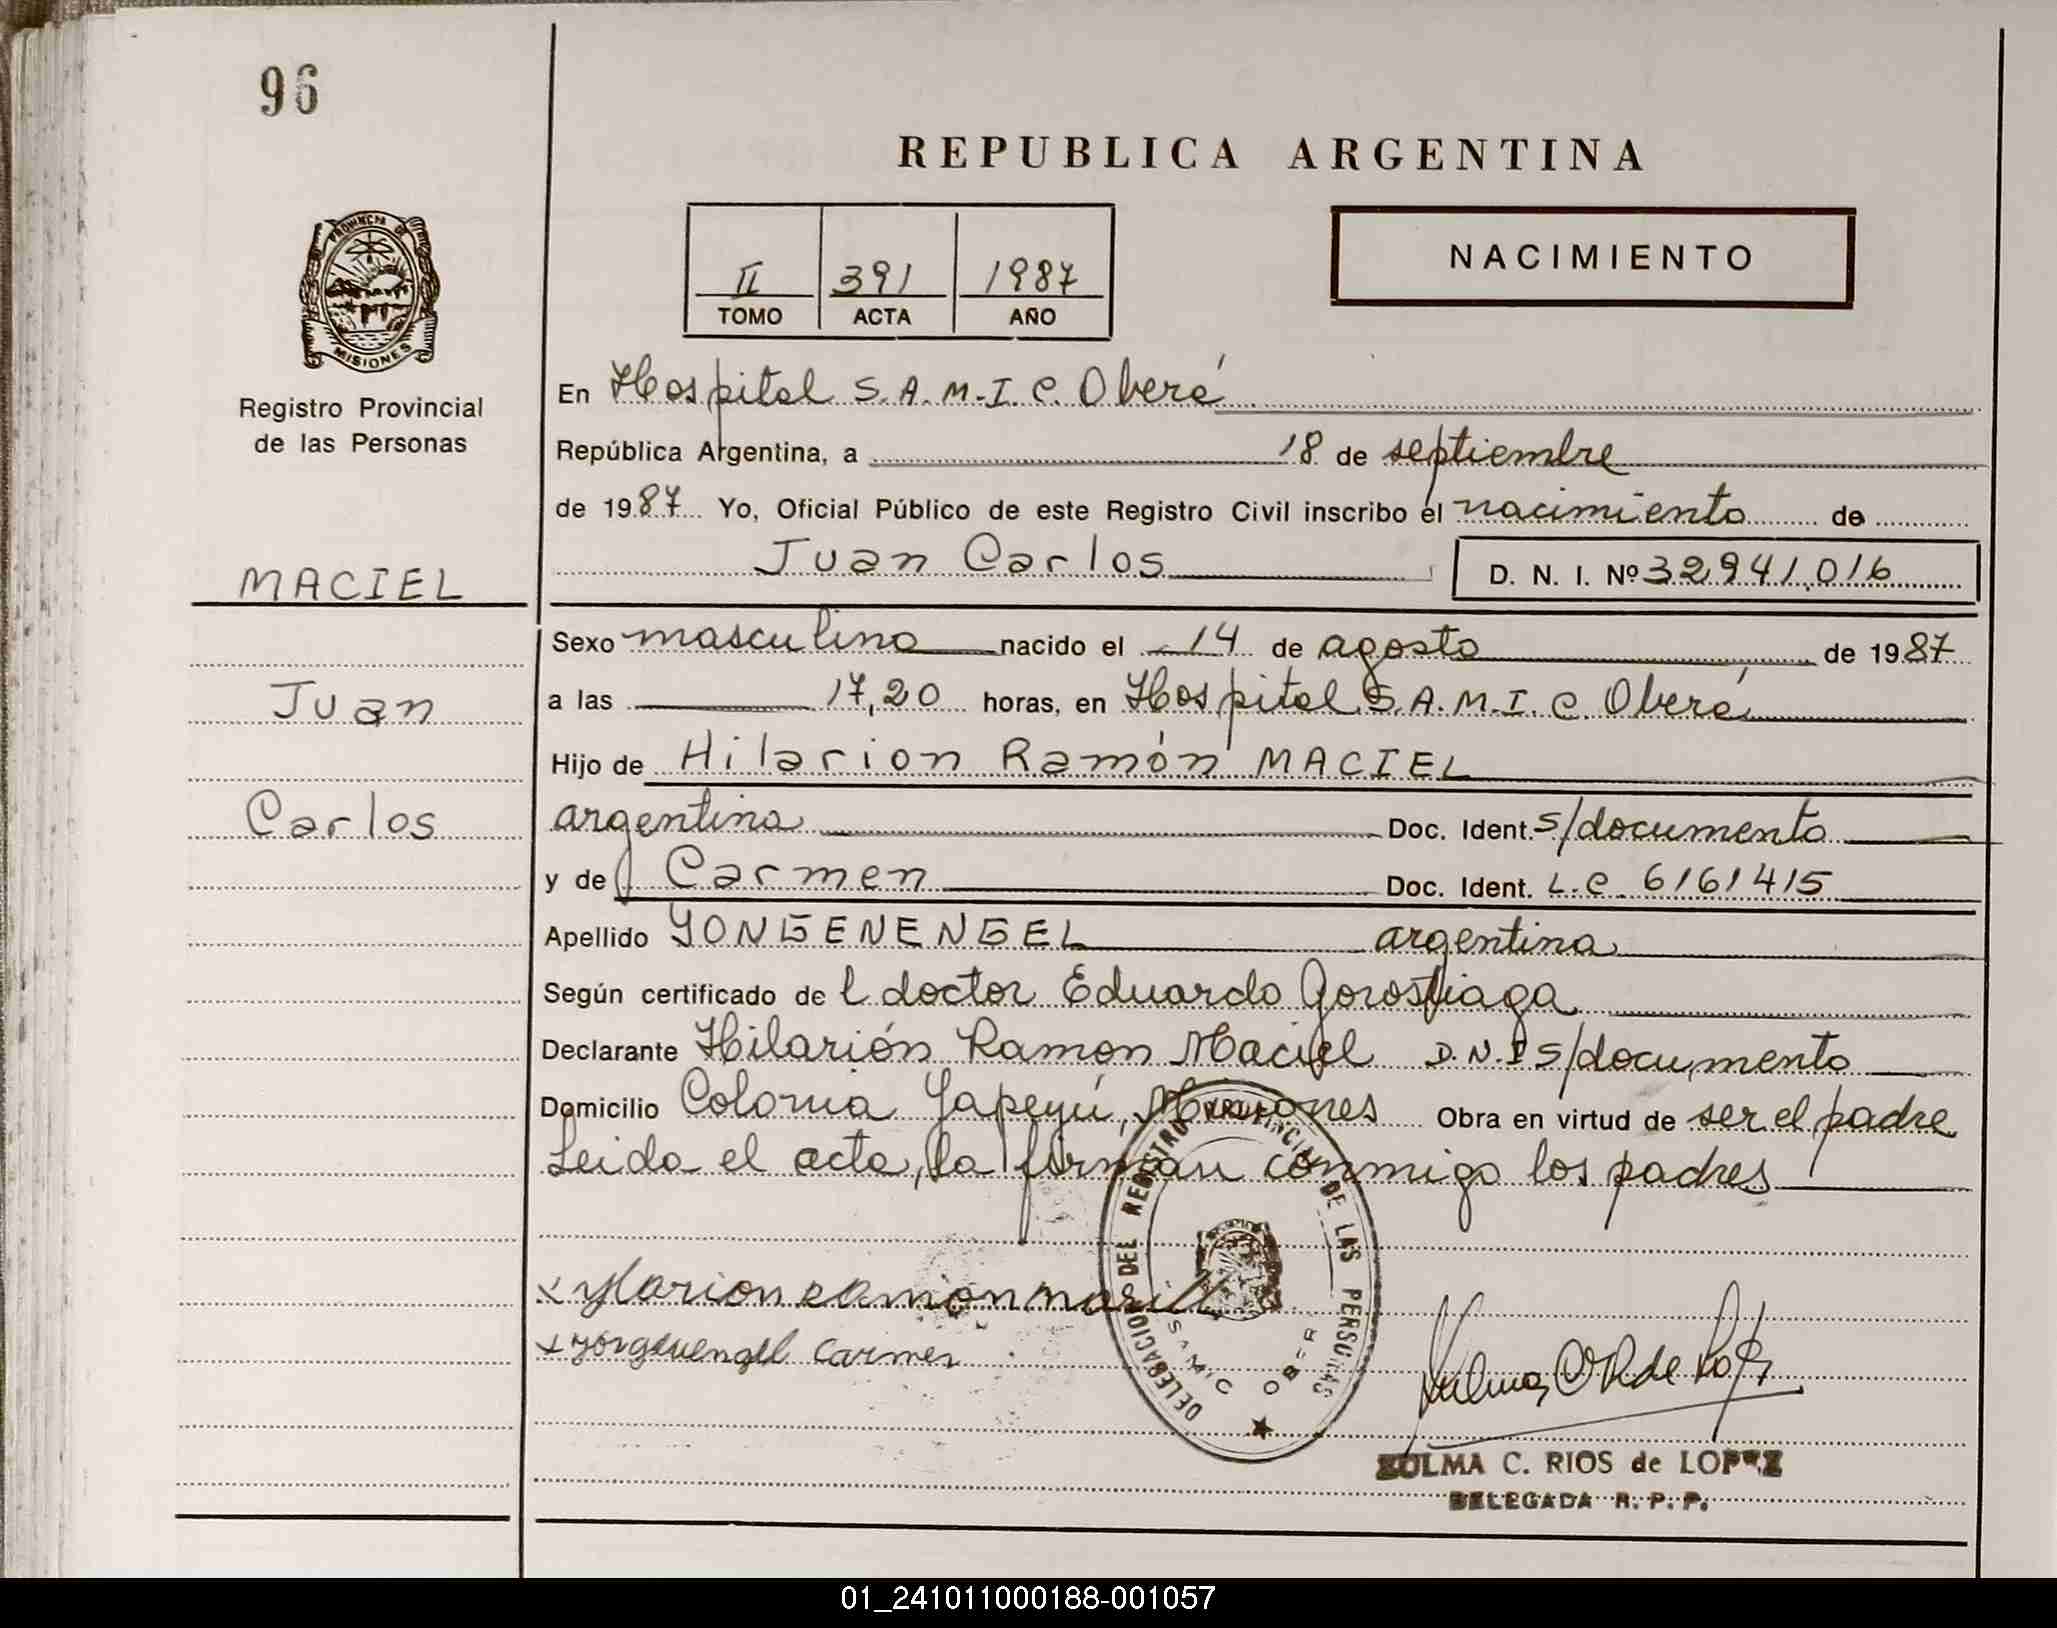 96
REPUBLICA ARGENTINA
PROVINCIA DE
MISIONES
Registro Provincial
de las Personas
II 391 1987
TOMO ACTA AÑO
NACIMIENTO
En Hospital S.A.M.I.C. Oberá
República Argentina, a 18 de septiembre
de 1987 Yo, Oficial Público de este Registro Civil inscribo el nacimiento de
Juan Carlos D. N. I. Nº 32.941.016
MACIEL
Juan
Carlos
Sexo masculino nacido el 14 de agosto de 1987
a las 17,20 horas, en Hospital S.A.M.I.C. Oberá
Hijo de Hilarion Ramón MACIEL
argentina Doc. Ident. s/documento
y de Carmen Doc. Ident. L.C. 6161415
Apellido YONGENENGEL argentina
Según certificado de l doctor Eduardo Gorostiaga
Declarante Hilarión Ramon Maciel D.N.I s/documento
Domicilio Colonia Yapeyú, Misiones Obra en virtud de ser el padre
Leida el acta, la firman conmigo los padres
DELEGACION DEL REGISTRO PROVINCIAL DE LAS PERSONAS
SAMIC OBERA
x ylarion ramon
x Carmen
ZULMA C. RIOS de LOPEZ
DELEGADA R. P. P.
01_241011000188-001057